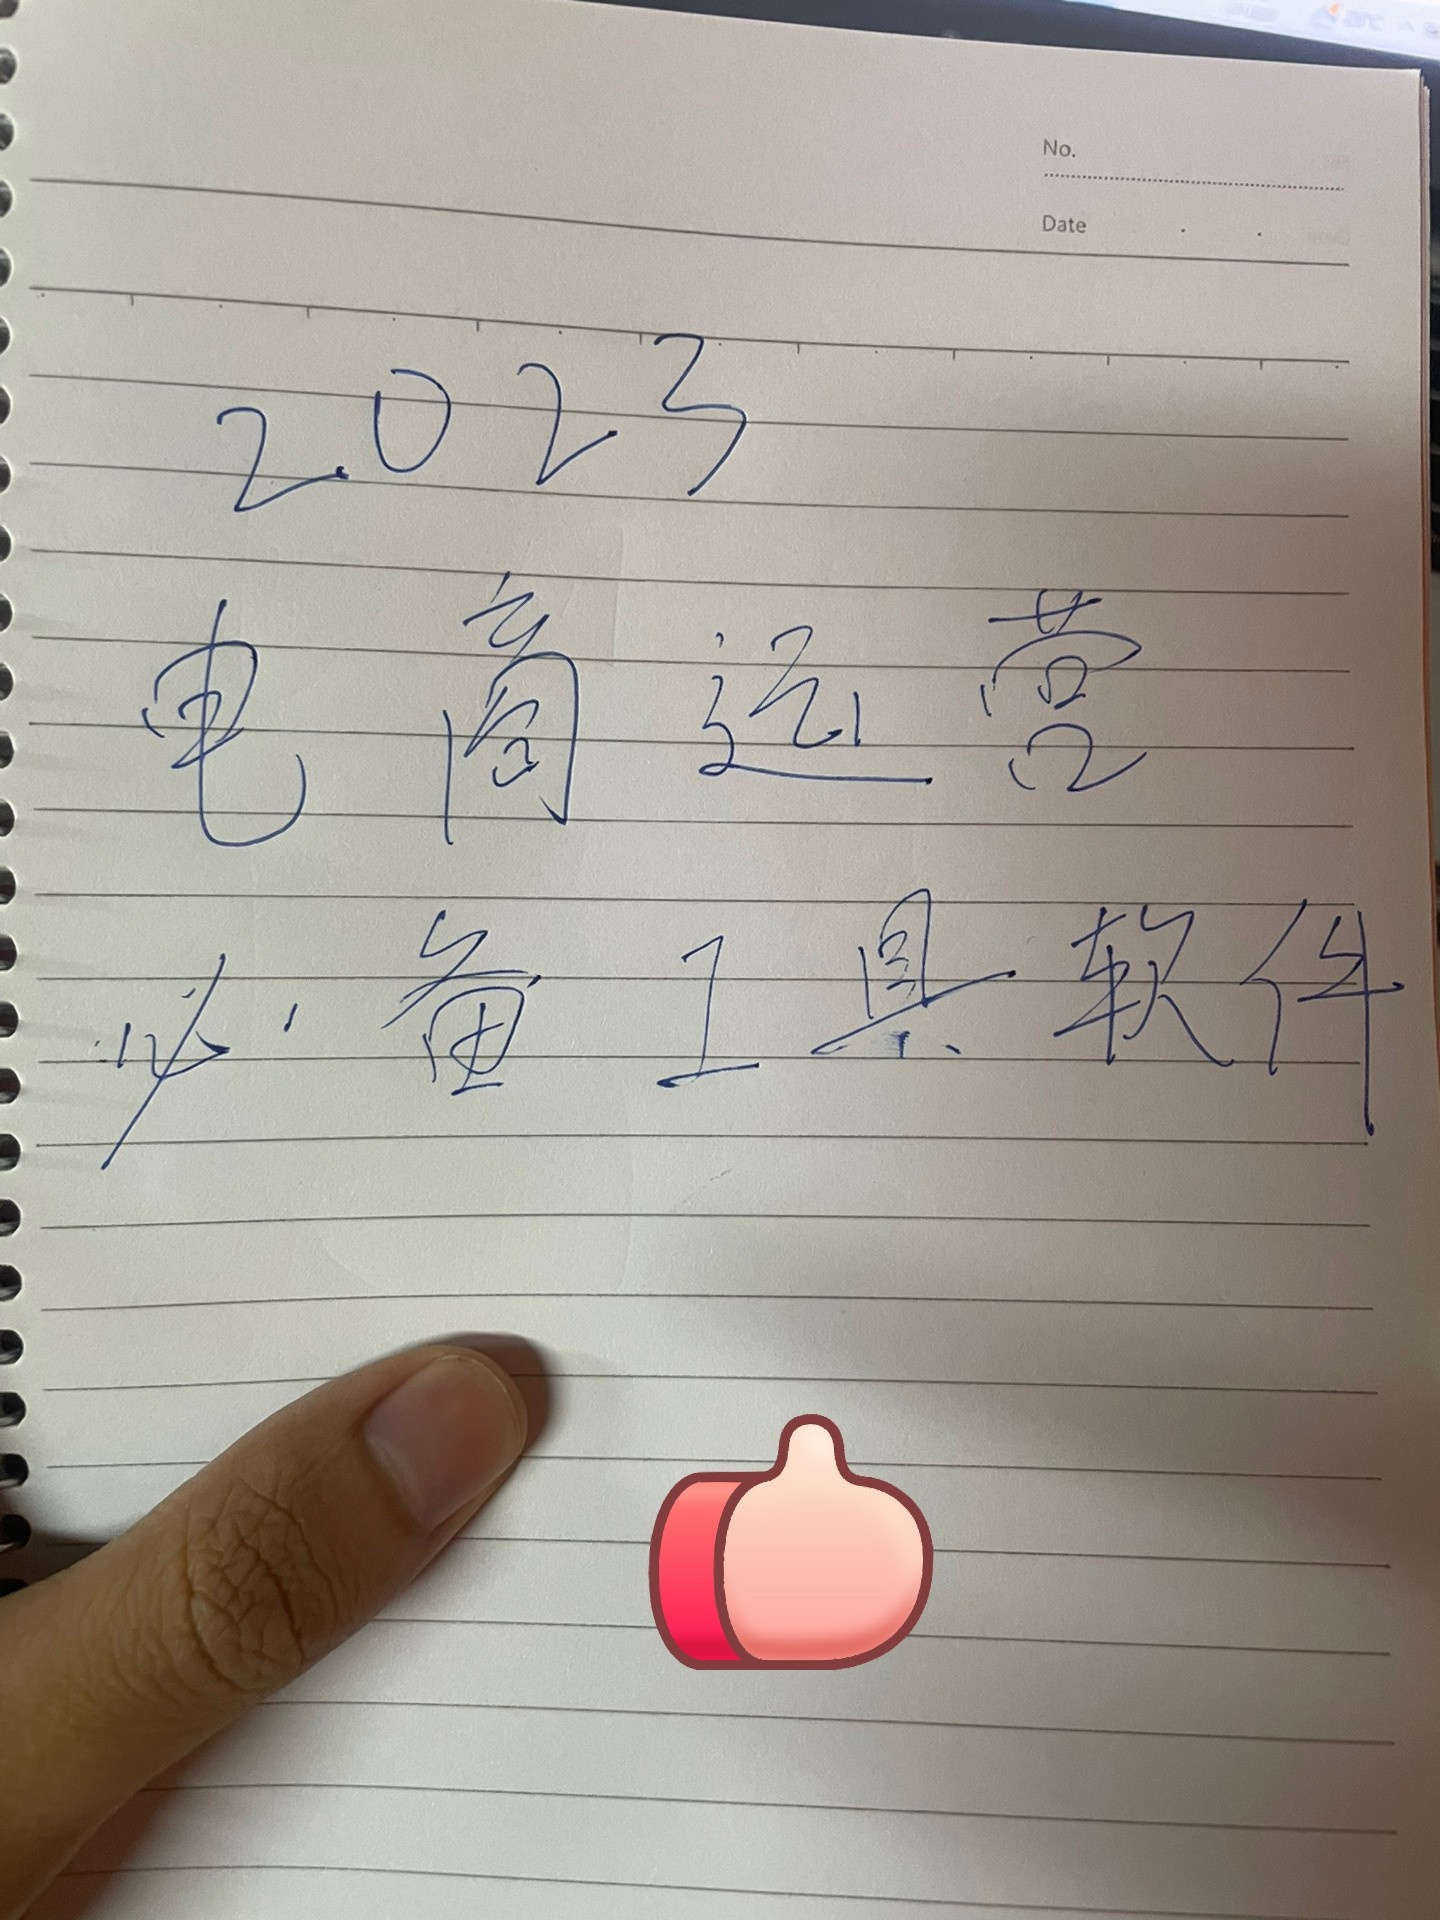 No.
Date
2023
电商运营
必备工具软件